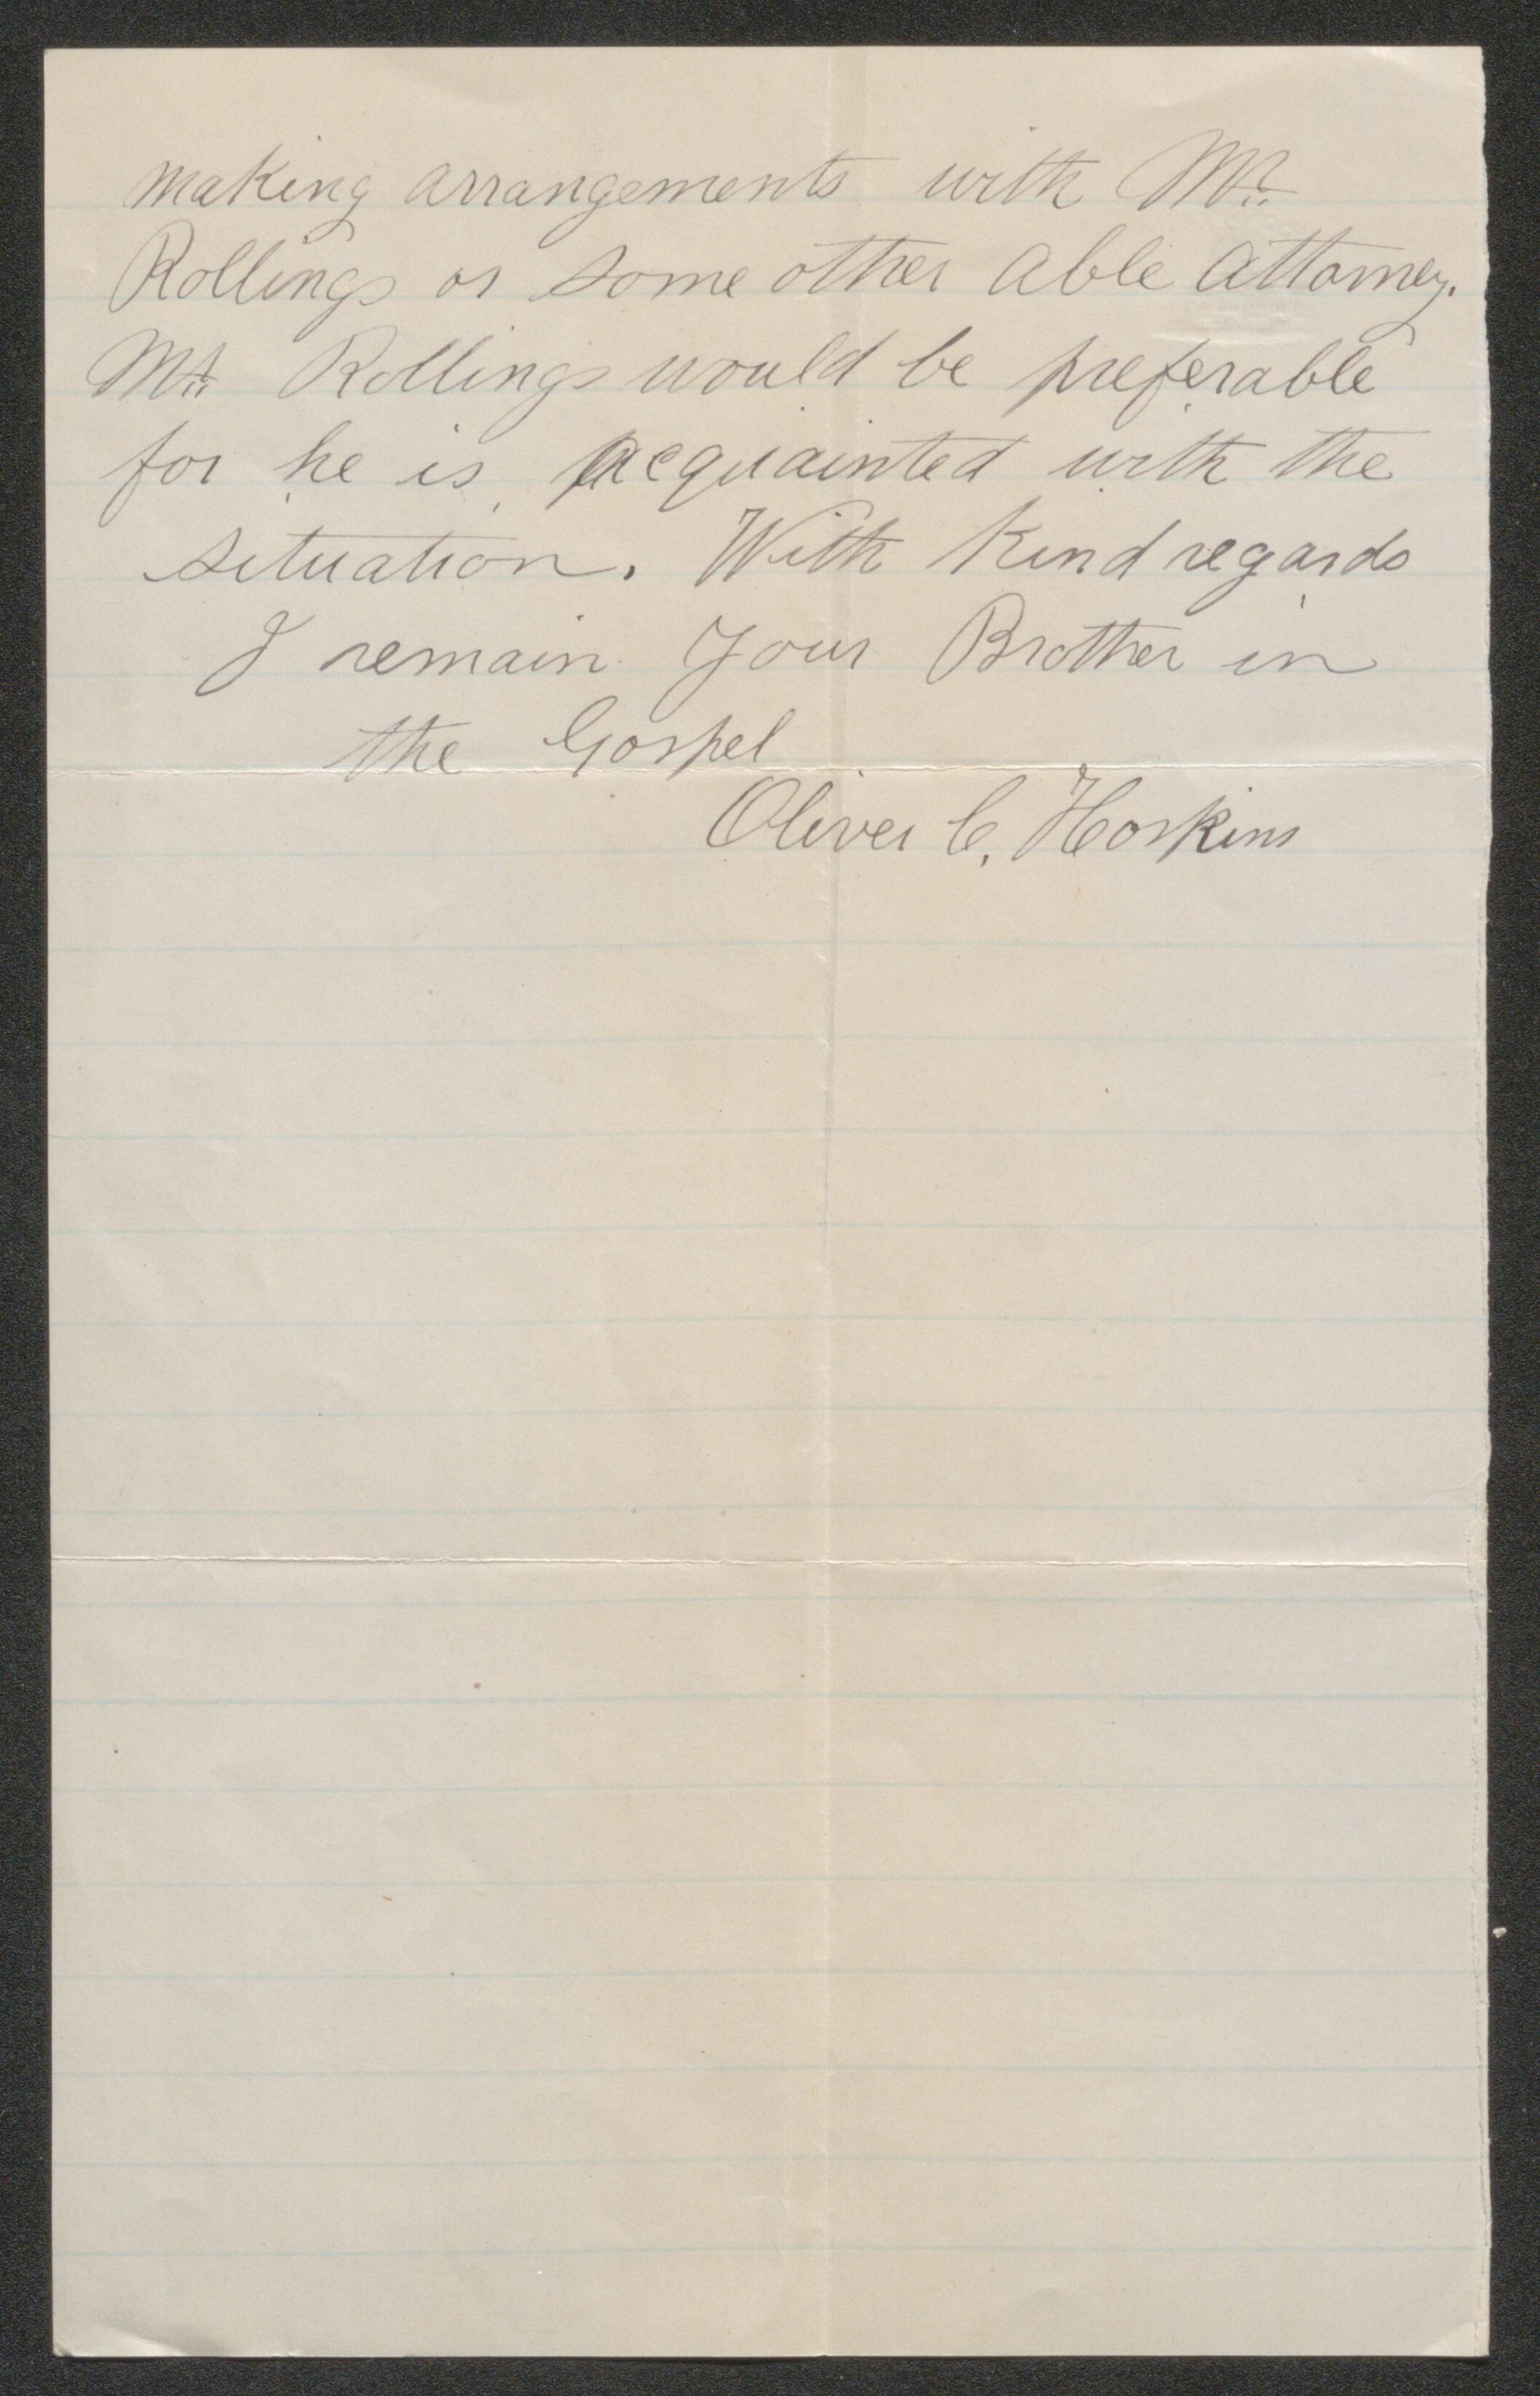 making arrangements with Mr.
Rollings or some other able attorney.
Mr. Rollings would be preferable
for he is acquainted with the
situation. With kind regards
I remain your Brother in
the Gospel
Oliver C. Hoskins